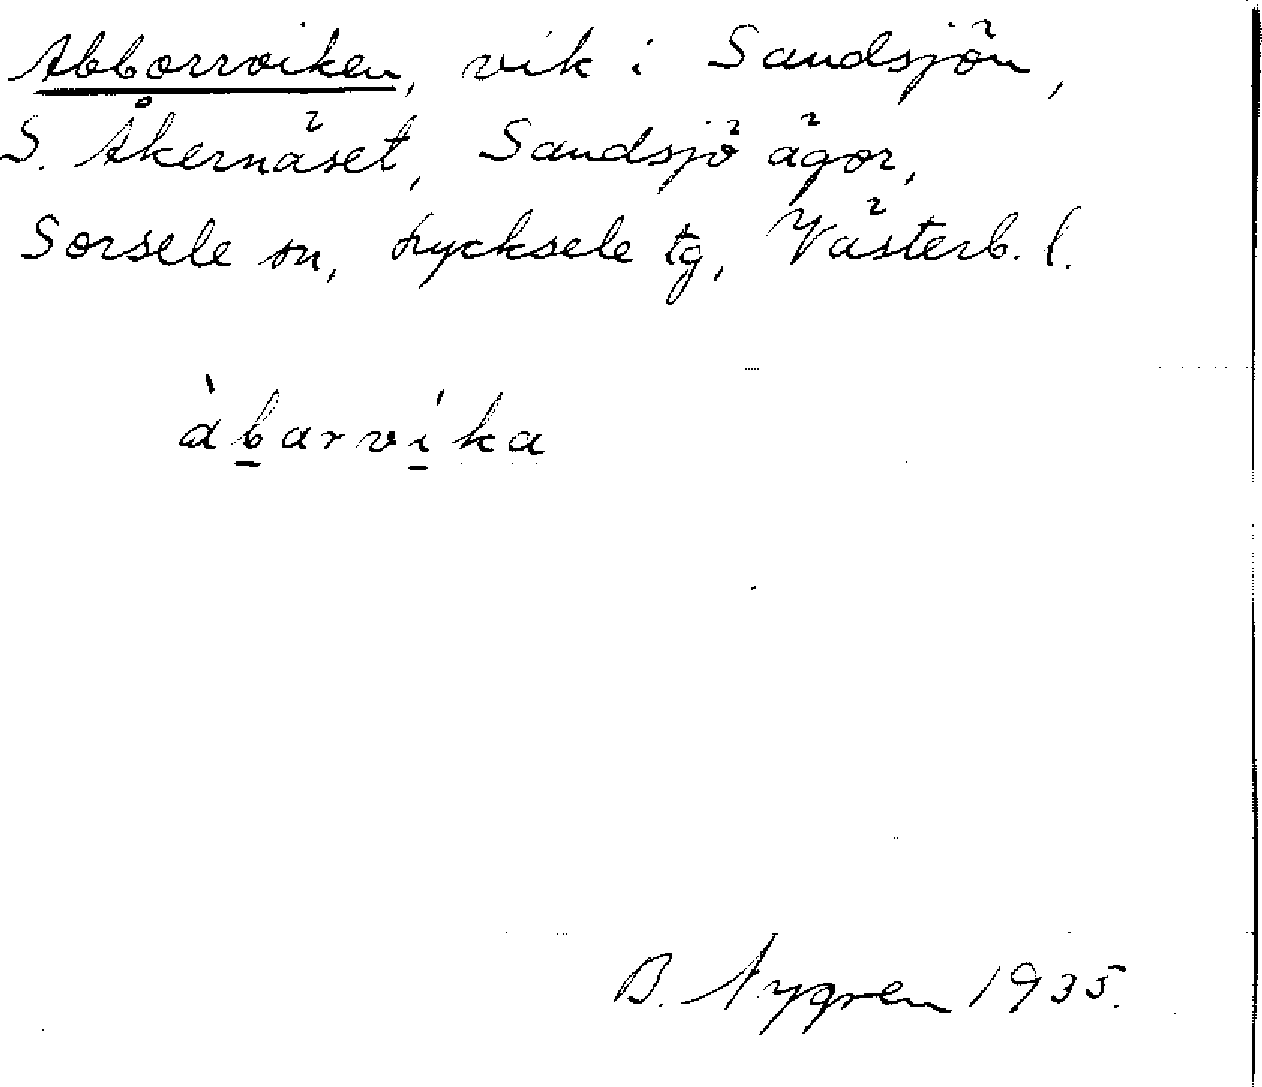 Abborrviken, vik i Sandsjön,
S. Åkernäset, Sandsjö ägor,
Sorsele sn, Lycksele tg, Västerb. l.
àb̲arví̲ka
B. Nygren 1935.